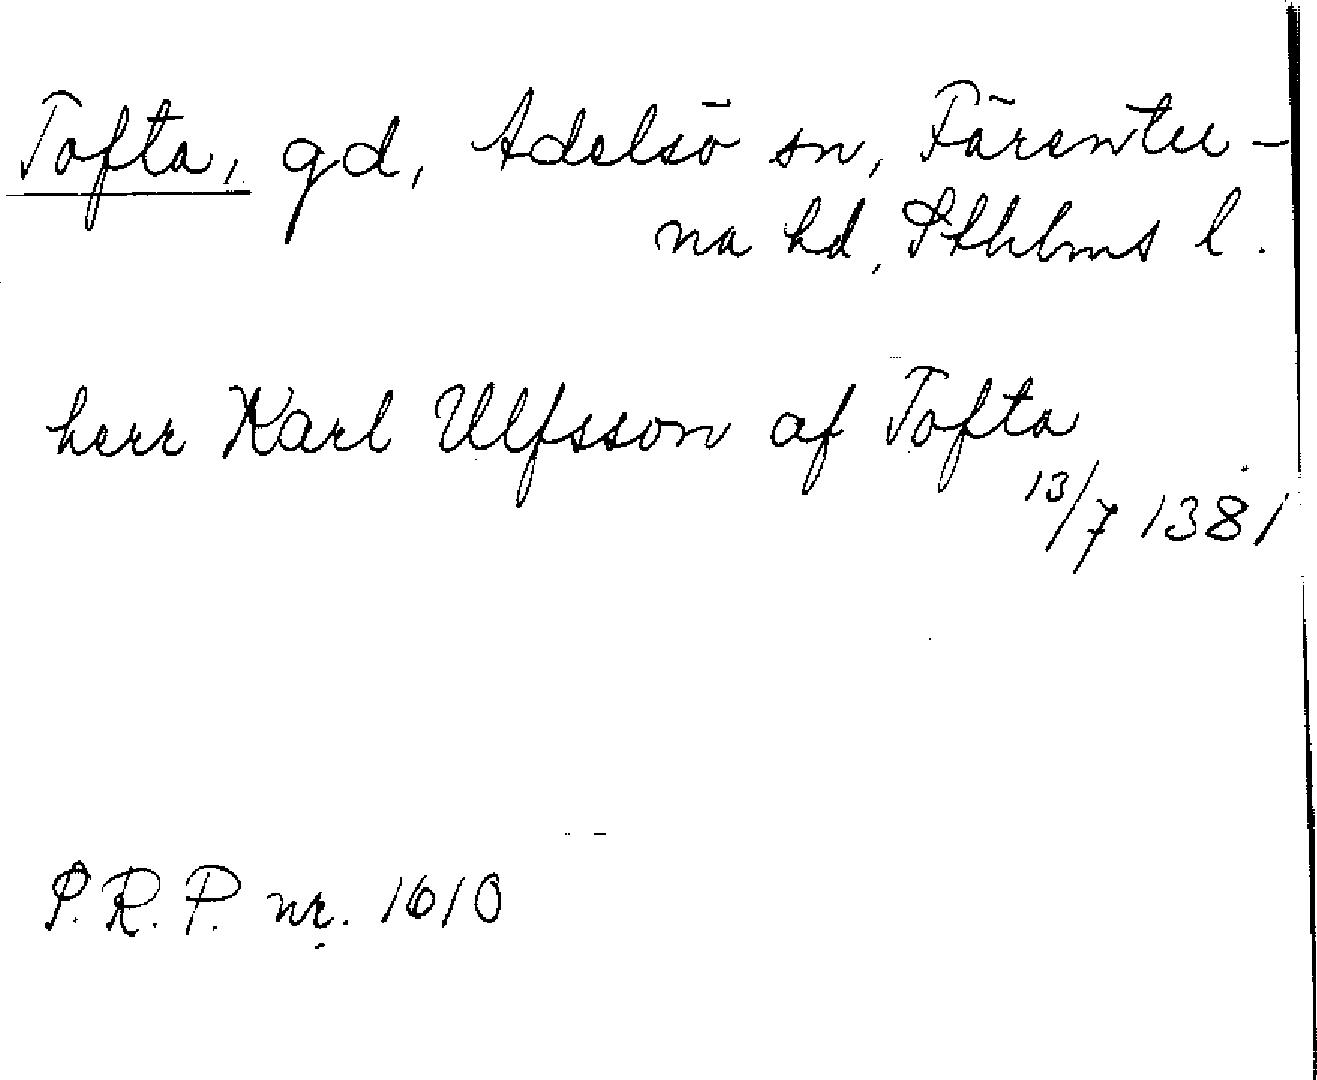 Tofta, gd, Adelsö sn, Färentu-
na hd, Sthlms l.
herr Karl Ulfsson af Tofta
13/7 1381
S.R.P. nr. 1610